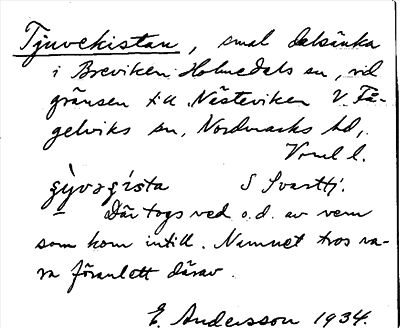 Tjuvekistan, smal dalsänka
i Breviken Holmedals sn, vid
gränsen till Nästeviken V. Få-
gelviks sn, Nordmarks hd,
Vrml l.
S Svarttj.
Där togs ved o.d. av vem
som kom intill. Namnet tros va-
ra föranlett därav.
E. Andersson 1934.